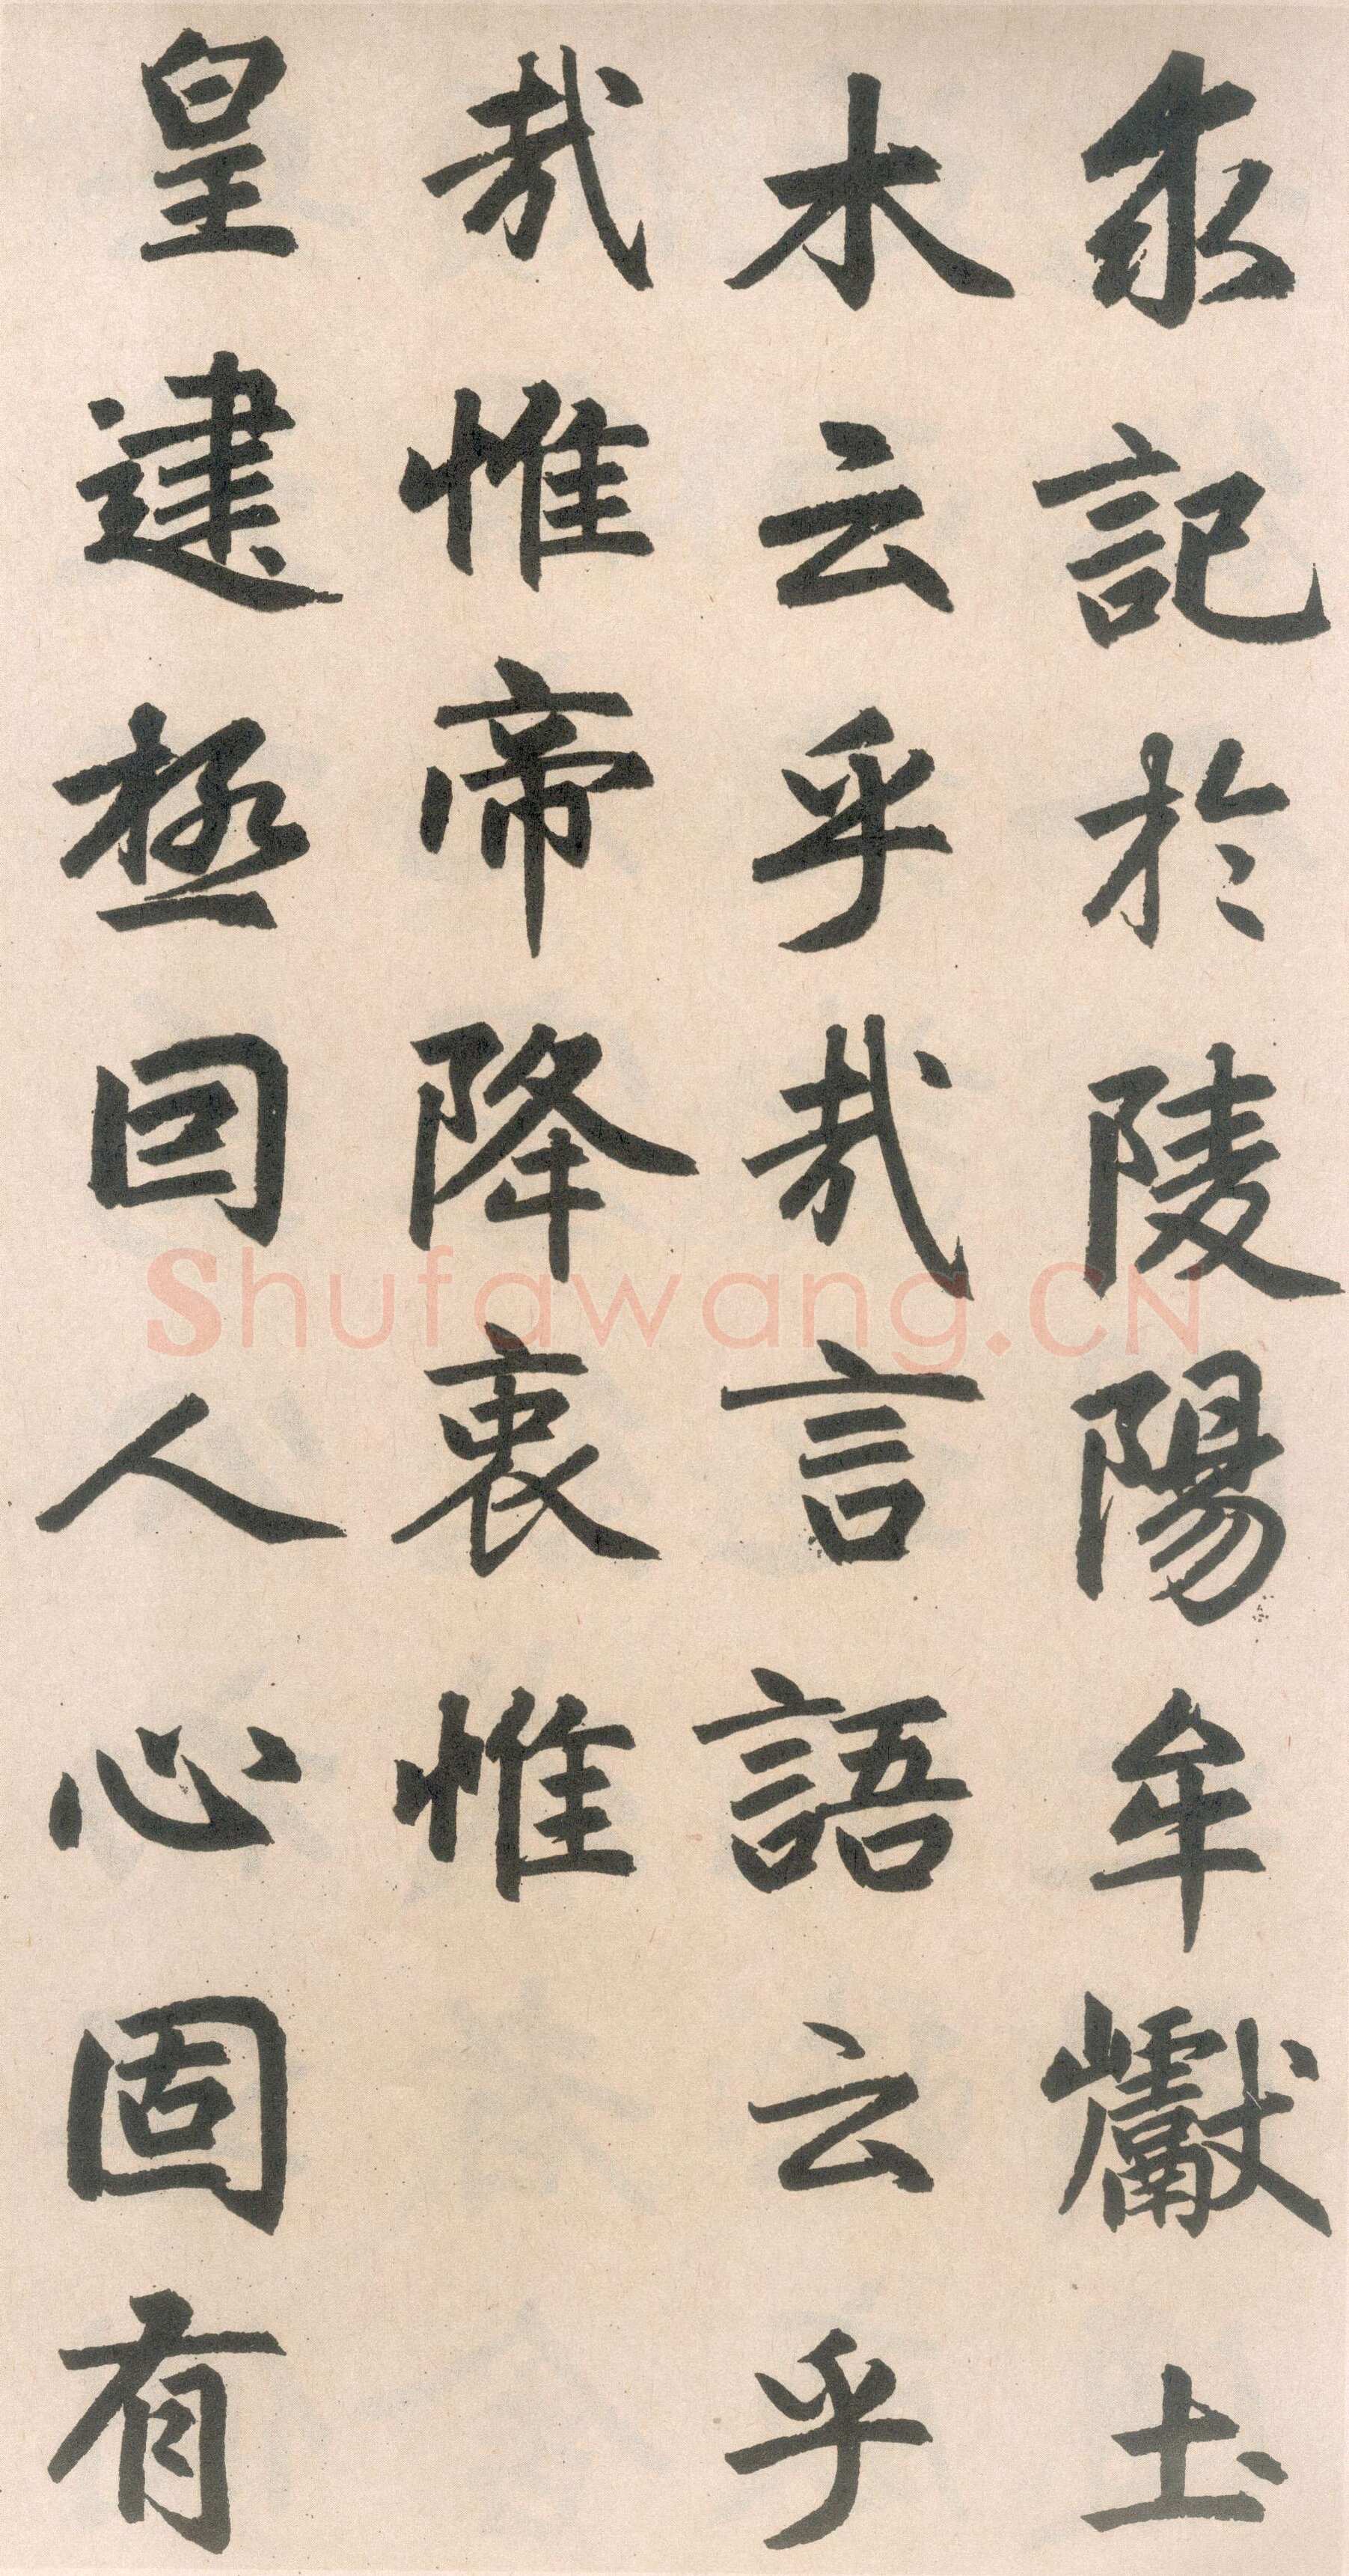 求記於陵陽牟巘土
木云乎哉言語云乎
哉惟帝降衷惟
皇建極因人心固有
Shufawang.CN